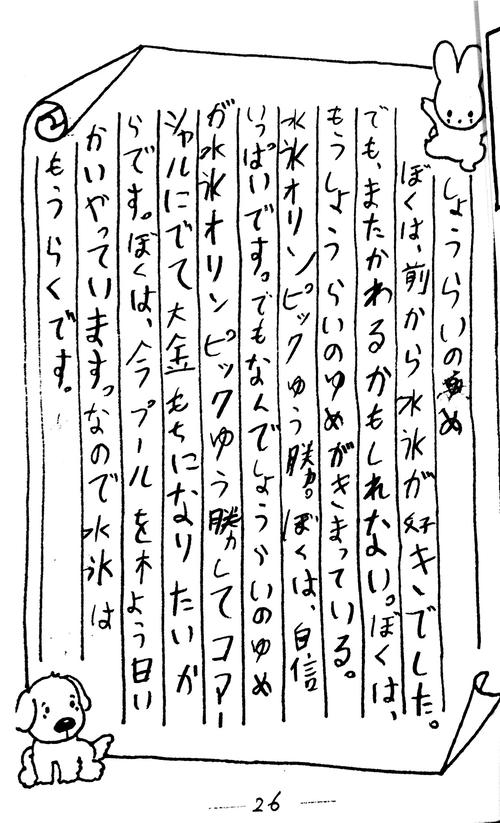 しょうらいの夢め
ぼくは、前から水氷が好キでした。
でも、またかわるかもしれない。ぼくは、
もうしょうらいのゆめがきまっている。
水氷オリンピックゆう勝。ぼくは、自信
いっぱいです。でもなんでしょうらいのゆめ
が水氷オリンピックゆう勝してコマー
シャルにでて大金もちになりたいか
らです。ぼくは、今プールを木よう日い
かいやっています。なので水氷は
もうらくです。
26